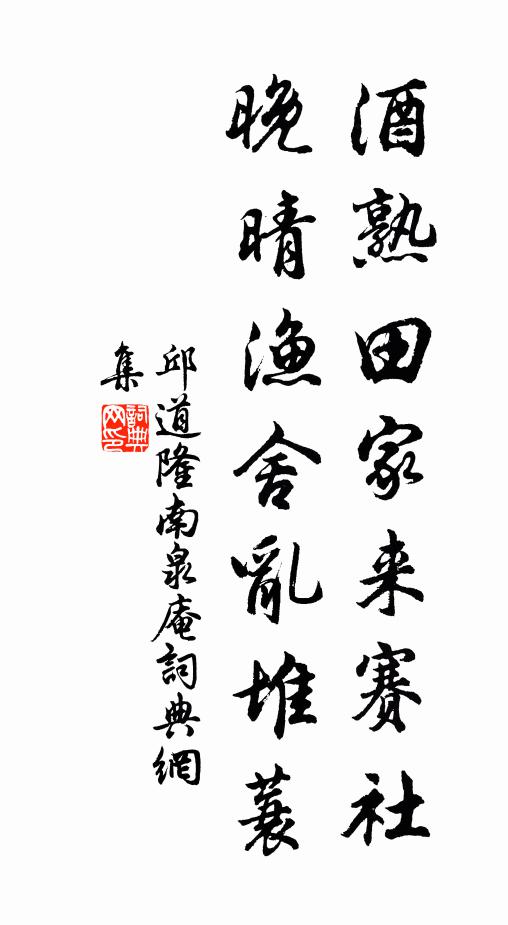 酒熟田家来賽社
晚晴漁舍亂堆蓑
邱道隆南泉庵詞典網
集
詞典
网印